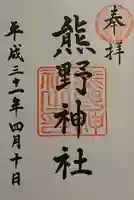 奉拝
熊野神社
平成三一年四月十日